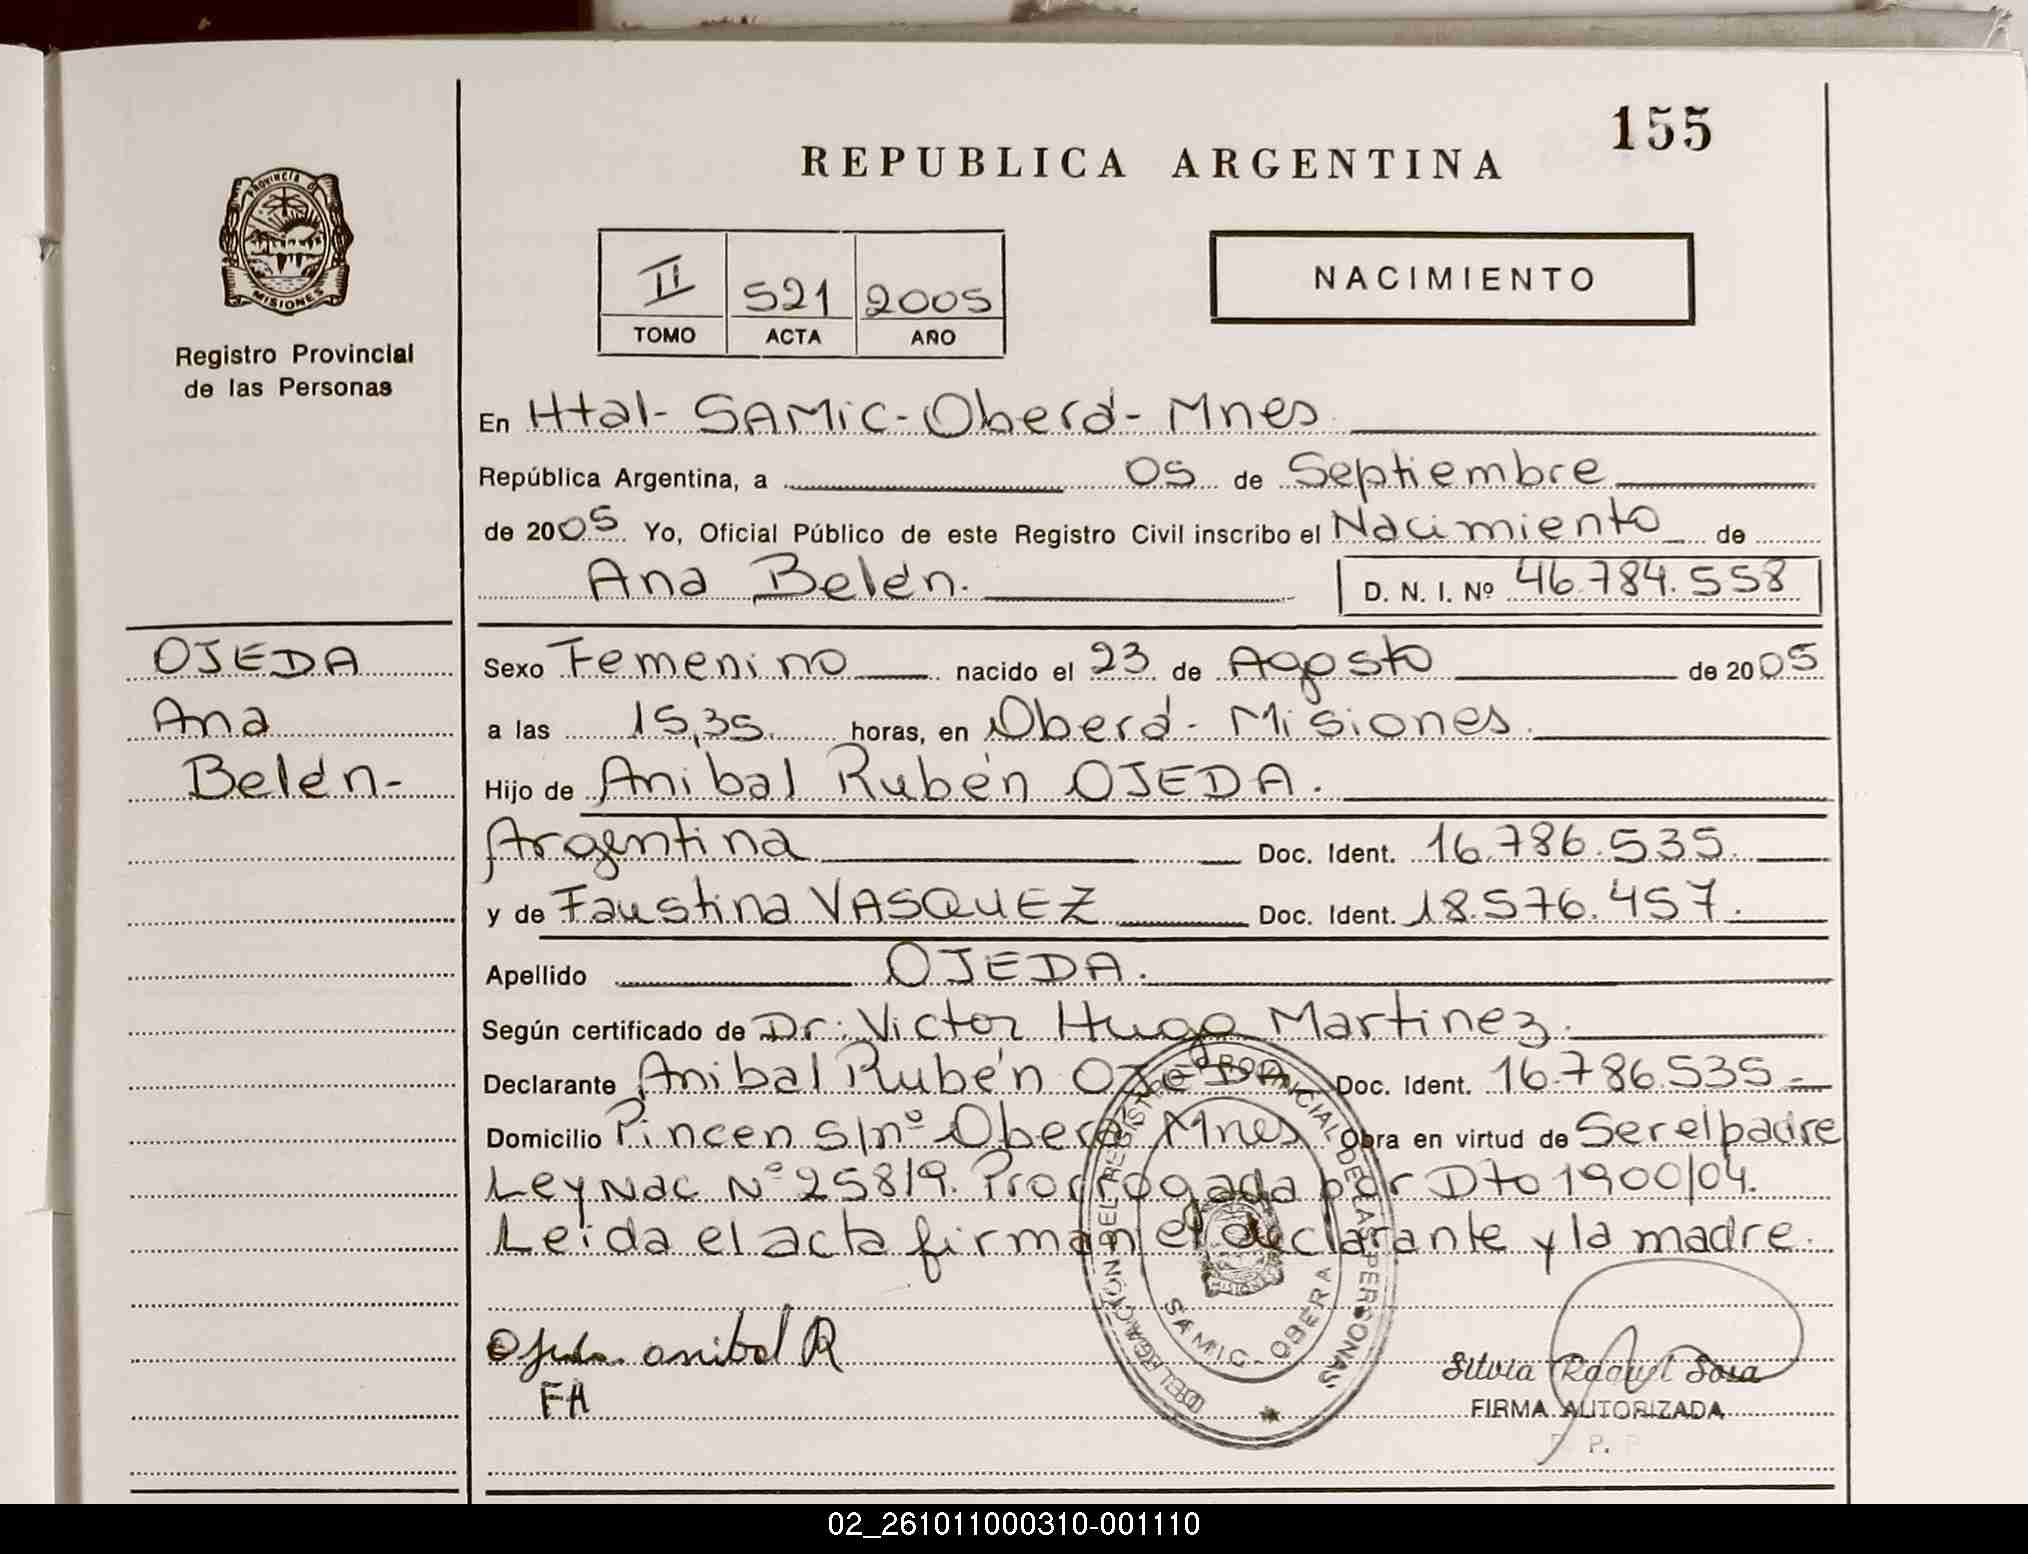 155
REPUBLICA ARGENTINA
PROVINCIA DE
MISIONES
Registro Provincial
de las Personas
II 521 2005
TOMO ACTA AÑO
NACIMIENTO
En Htal-SAMIC-Oberá-Mnes
República Argentina, a 05 de Septiembre
de 2005 Yo, Oficial Público de este Registro Civil inscribo el Nacimiento de
Ana Belén. D. N. I. Nº 46.784.558
OJEDA
Ana
Belén-
Sexo Femenino nacido el 23 de Agosto de 2005
a las 15,35 horas, en Oberá-Misiones.
Hijo de Anibal Rubén OJEDA.
Argentina Doc. Ident. 16.786.535.
y de Faustina VASQUEZ Doc. Ident. 18.576.457.
Apellido OJEDA.
Según certificado de Dr: Victor Hugo Martinez.
Declarante Anibal Rubén OJEDA Doc. Ident. 16.786.535-
Domicilio Pincen s/nº Oberá Mnes Obra en virtud de Ser el padre
Ley Nac Nº 25819. Prorrogada por Dto 1900/04.
Leida el acta firman el declarante y la madre.
DELEGACIÓN DEL REGISTRO PROVINCIAL DE LAS PERSONAS
SAMIC-OBERA
Ojeda anibal R
FA
Silvia Raquel Sosa
FIRMA AUTORIZADA
02_261011000310-001110